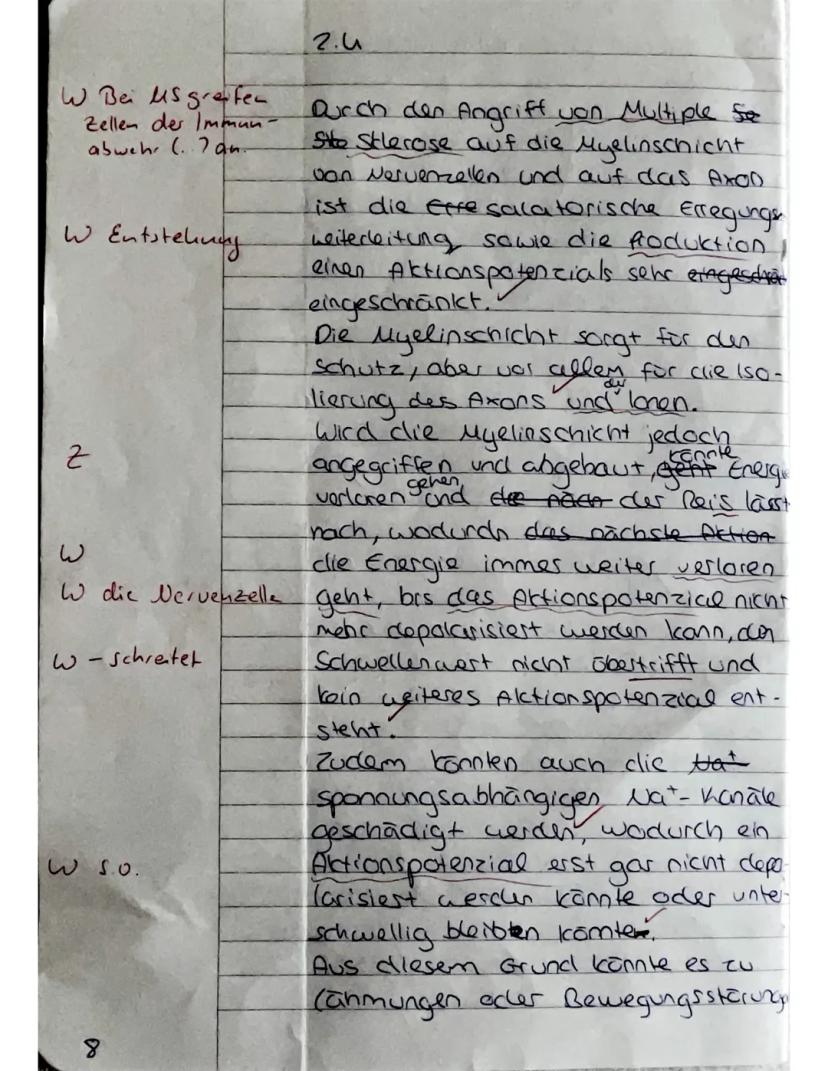 2.4
W Bei MS greifen
Zellen der Immun-
abwehr (..) an.
Durch den Angriff von Multiple Se
Ste Stlerose auf die Myelinschicht
von Nervenzellen und auf das Axon
ist die Erre salatorische Erregungs
W Entstehung
weiterleitung sowie die Produktion
einen Aktionspotenzials sehr eingeschrä
eingeschränkt.
Die Myelinschicht sorgt für den
Schutz, aber vor allem für die Iso-
lierung des Axons und der Ionen.
Wird die Myelinschicht jedoch
Z
angegriffen und abgebaut, geht könnte Energie
verloren gehen und die nach der Reis lässt
nach, wodurch das nächste Aktion
W
die Energie immer weiter verloren
W die Nervenzelle
geht, bis das Aktionspotenzial nicht
mehr depolarisiert werden kann, den
W -schreitet
Schwellenwert nicht übertrifft und
kein weiteres Aktionspotenzial ent-
steht.
Zudem könnten auch die Na+
spannungsabhängigen Na+-Kanäle
geschädigt werden, wodurch ein
W s.o.
Aktionspotenzial erst gar nicht depo
larisiert werden könnte oder unter-
schwellig bleiben könnte.
Aus diesem Grund könnte es zu
Lähmungen oder Bewegungsstörung
8